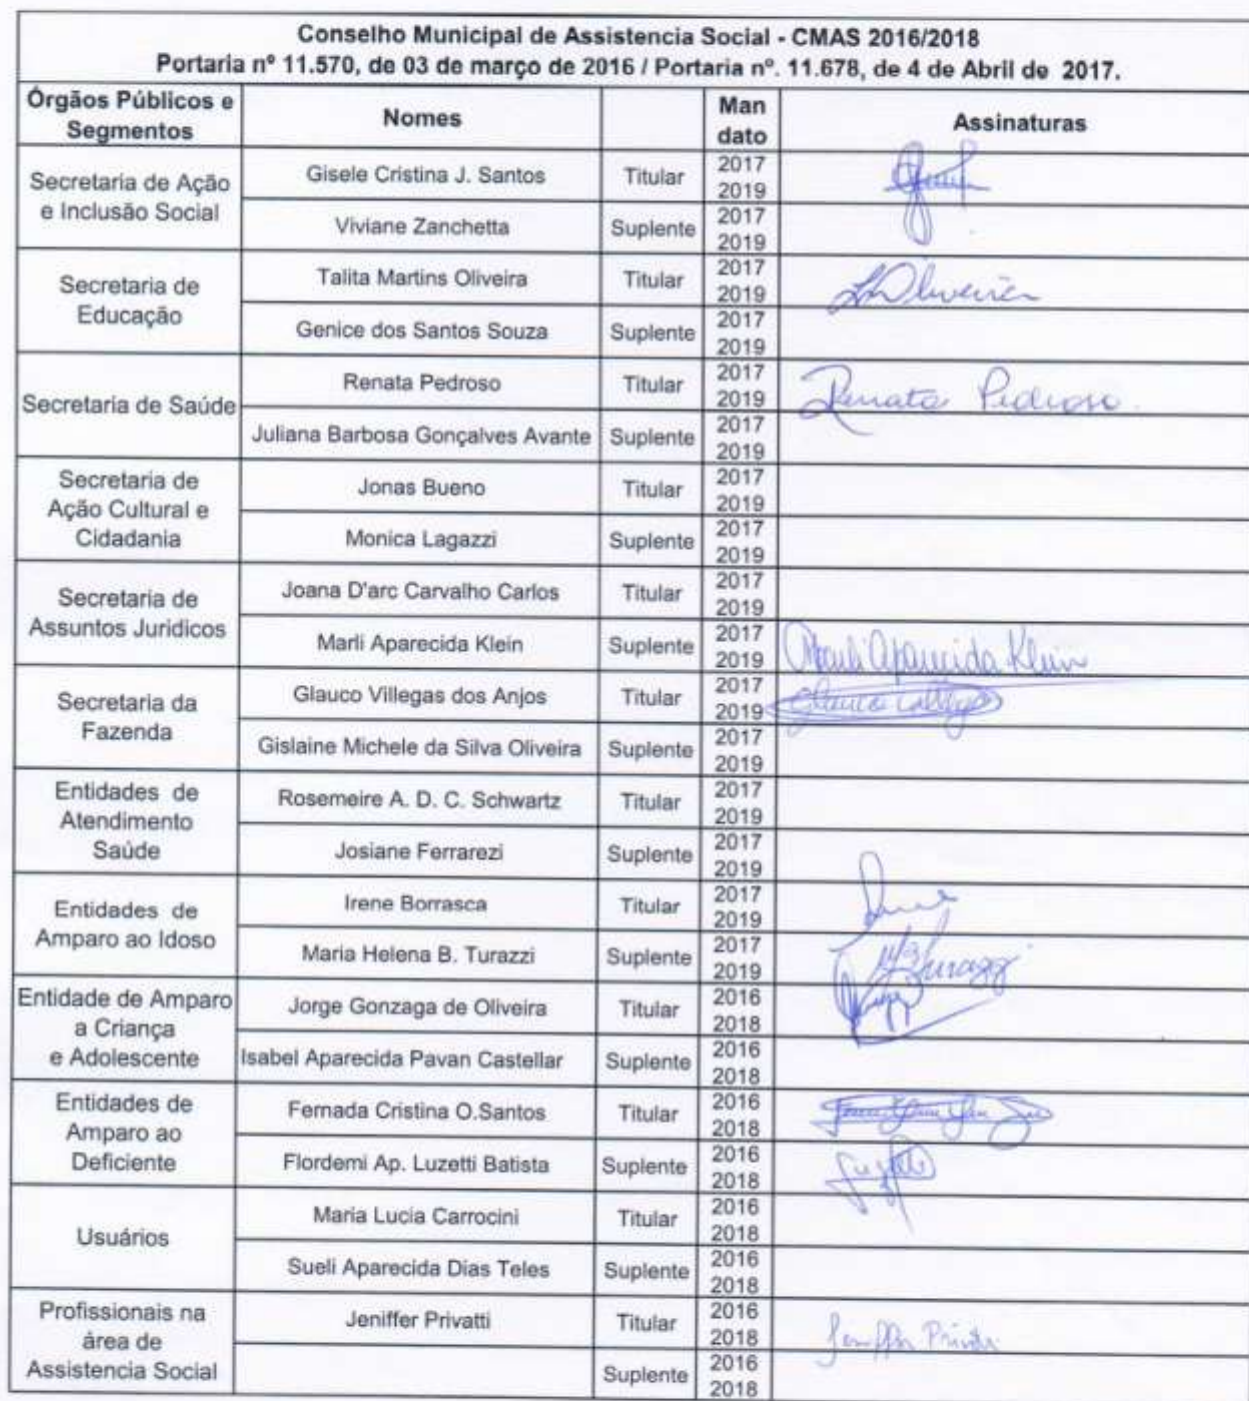 Conselho Municipal de Assistencia Social - CMAS 2016/2018
Portaria nº 11.570, de 03 de março de 2016 / Portaria nº. 11.678, de 4 de Abril de 2017.
Órgãos Públicos e Segmentos Nomes Man dato Assinaturas
Secretaria de Ação e Inclusão Social
Gisele Cristina J. Santos Titular 2017 2019
Viviane Zanchetta Suplente 2017 2019
Secretaria de Educação
Talita Martins Oliveira Titular 2017 2019 Oliveira
Genice dos Santos Souza Suplente 2017 2019
Secretaria de Saúde
Renata Pedroso Titular 2017 2019 Renata Pedroso
Juliana Barbosa Gonçalves Avante Suplente 2017 2019
Secretaria de Ação Cultural e Cidadania
Jonas Bueno Titular 2017 2019
Monica Lagazzi Suplente 2017 2019
Secretaria de Assuntos Juridicos
Joana D'arc Carvalho Carlos Titular 2017 2019
Marli Aparecida Klein Suplente 2017 2019 Marli Aparecida Klein
Secretaria da Fazenda
Glauco Villegas dos Anjos Titular 2017 2019 Glauco
Gislaine Michele da Silva Oliveira Suplente 2017 2019
Entidades de Atendimento Saúde
Rosemeire A. D. C. Schwartz Titular 2017 2019
Josiane Ferrarezi Suplente 2017 2019
Entidades de Amparo ao Idoso
Irene Borrasca Titular 2017 2019
Maria Helena B. Turazzi Suplente 2017 2019 Turazzi
Entidade de Amparo a Criança e Adolescente
Jorge Gonzaga de Oliveira Titular 2016 2018
Isabel Aparecida Pavan Castellar Suplente 2016 2018
Entidades de Amparo ao Deficiente
Fernada Cristina O.Santos Titular 2016 2018
Flordemi Ap. Luzetti Batista Suplente 2016 2018
Usuários
Maria Lucia Carrocini Titular 2016 2018
Sueli Aparecida Dias Teles Suplente 2016 2018
Profissionais na área de Assistencia Social
Jeniffer Privatti Titular 2016 2018 Jeniffer
Suplente 2016 2018